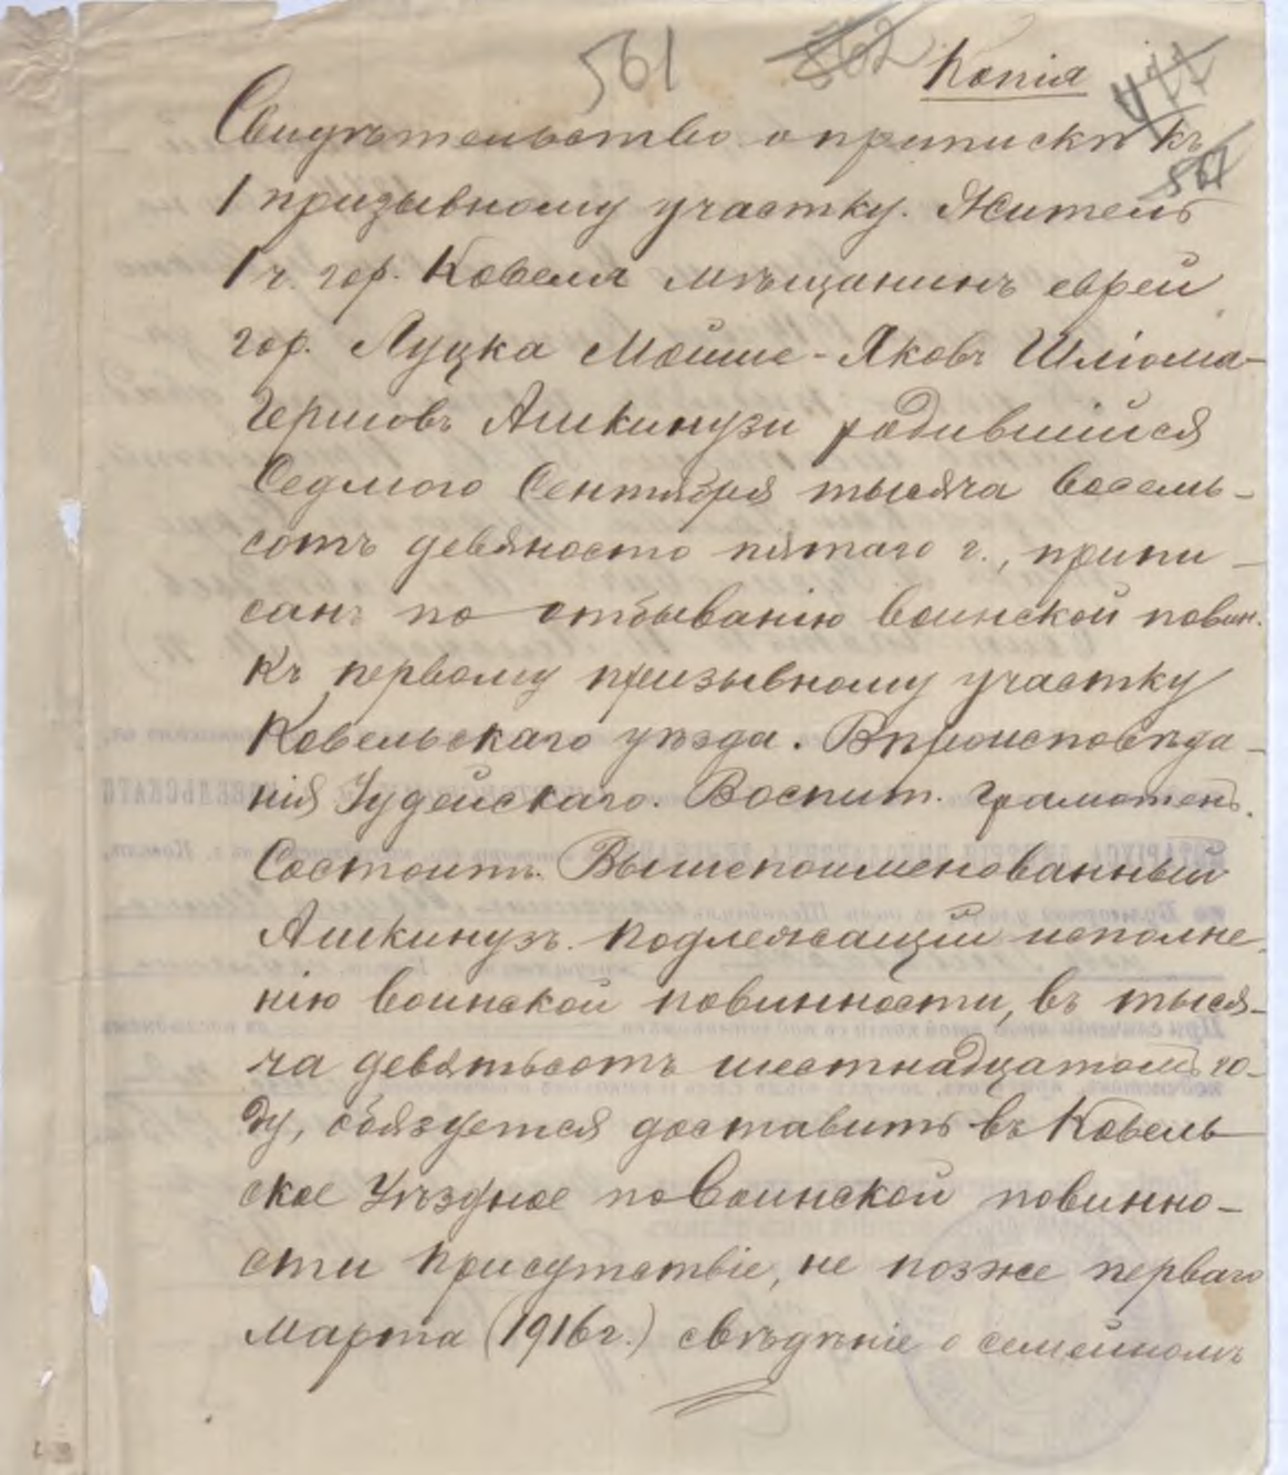 561 562 Копія 477
Свидѣтельство о припискѣ къ
561
1 призывному участку. Житель
1 ч. гор. Ковеля мѣщанинъ еврей
гор. Луцка Мойше-Яковъ Шліома-
Гершовъ Ашкинузи родившійся
Седмого Сентября тысяча восемь-
сотъ девяносто пятаго г., припи-
санъ по отбыванію воинской повин.
къ первому призывному участку
Ковельскаго уѣзда. Вѣроисповѣда-
нія Іудейскаго. Воспит. грамотенъ.
Состоитъ. Вышепоименованный
Ашкинузъ. подлежащій исполне-
нію воинской повинности, въ тыся-
ча девятьсотъ шестнадцатомъ го-
ду, обязуется доставить въ Ковель-
ское Уѣздное по воинской повинно-
сти присутствіе, не позже перваго
Марта (1916 г.) свѣдѣніе о семейномъ